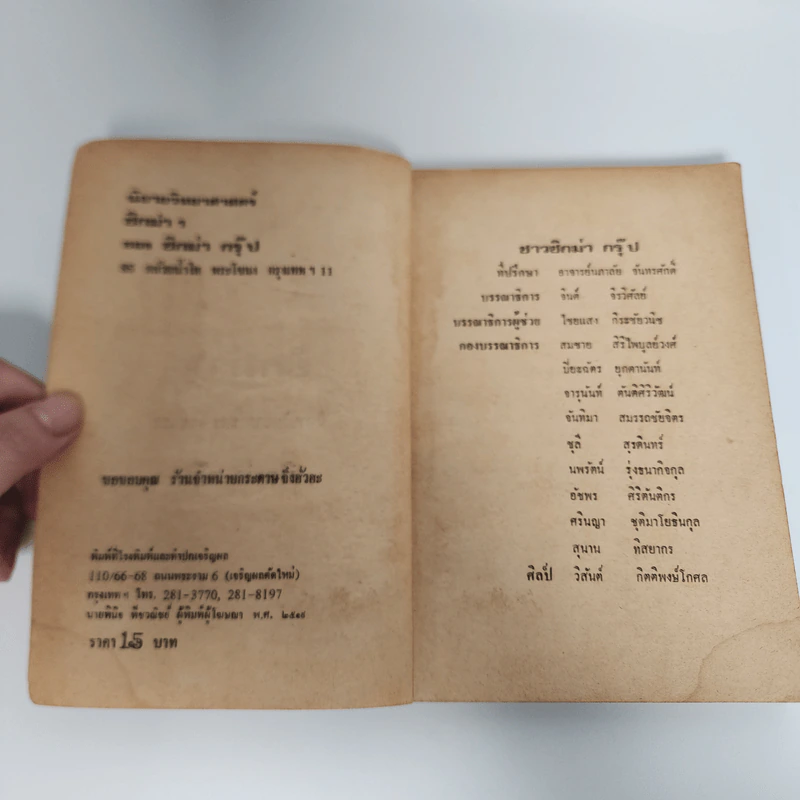 นิยายวิทยาศาสตร์
ฮิกม่า ๑
ของ ฮิกม่า กรุ๊ป
กล้วยน้ำไท พระโขนง กรุงเทพ ฯ 11
ขอขอบคุณ ร้านจำหน่ายกระดาษ
พิมพ์ที่โรงพิมพ์และทำปกเจริญผล
110/66-68 ถนนพระราม 6 (เจริญผลตัดใหม่)
กรุงเทพ ฯ โทร. 281-3770, 281-8197
นายพินิจ ผู้พิมพ์ผู้โฆษณา พ.ศ. ๒๕๑๙
ราคา 15 บาท
ชาวฮิกม่า กรุ๊ป
ที่ปรึกษา อาจารย์นภาลัย จันทรศักดิ์
บรรณาธิการ จินต์ จิรวิศัลย์
บรรณาธิการผู้ช่วย ไชยแสง กิระชัยวนิช
กองบรรณาธิการ สมชาย สิริไพบูลย์วงศ์
ปิยะฉัตร ยุกตานันท์
จารุนันท์ ตันติศิริวัฒน์
จันทิมา สมรรถชัยจิตร
ชุลี สุรตินทร์
นพรัตน์ รุ่งธนากิจกุล
อัชพร ศิริตันติกร
ศรินญา ชุติมาโยธินกุล
สุนาน ทิสยากร
ศิลป์ วิสันต์ กิตติพงษ์โกศล